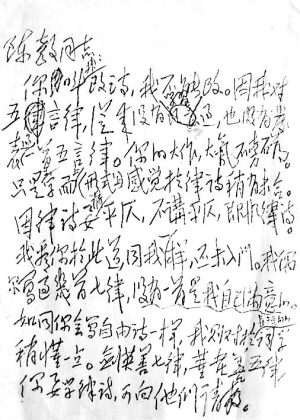 陈毅同志：
你叫我改诗，我不能改。因我对
五言律，从来没有学习过，也没有发
表过一首五言律。你的大作，大气磅礴。
只是在形式上感觉于律诗稍有未合。
因律诗要讲平仄，不讲平仄，即非律诗。
我看你于此道，同我一样，还未入门。我偶
尔写过几首七律，没有一首是我自己满意的。
如同你会写自由诗一样，我则对于长短句的词学
稍懂一点。剑英善七律，董老善五律，
你要学律诗，可向他们请教。